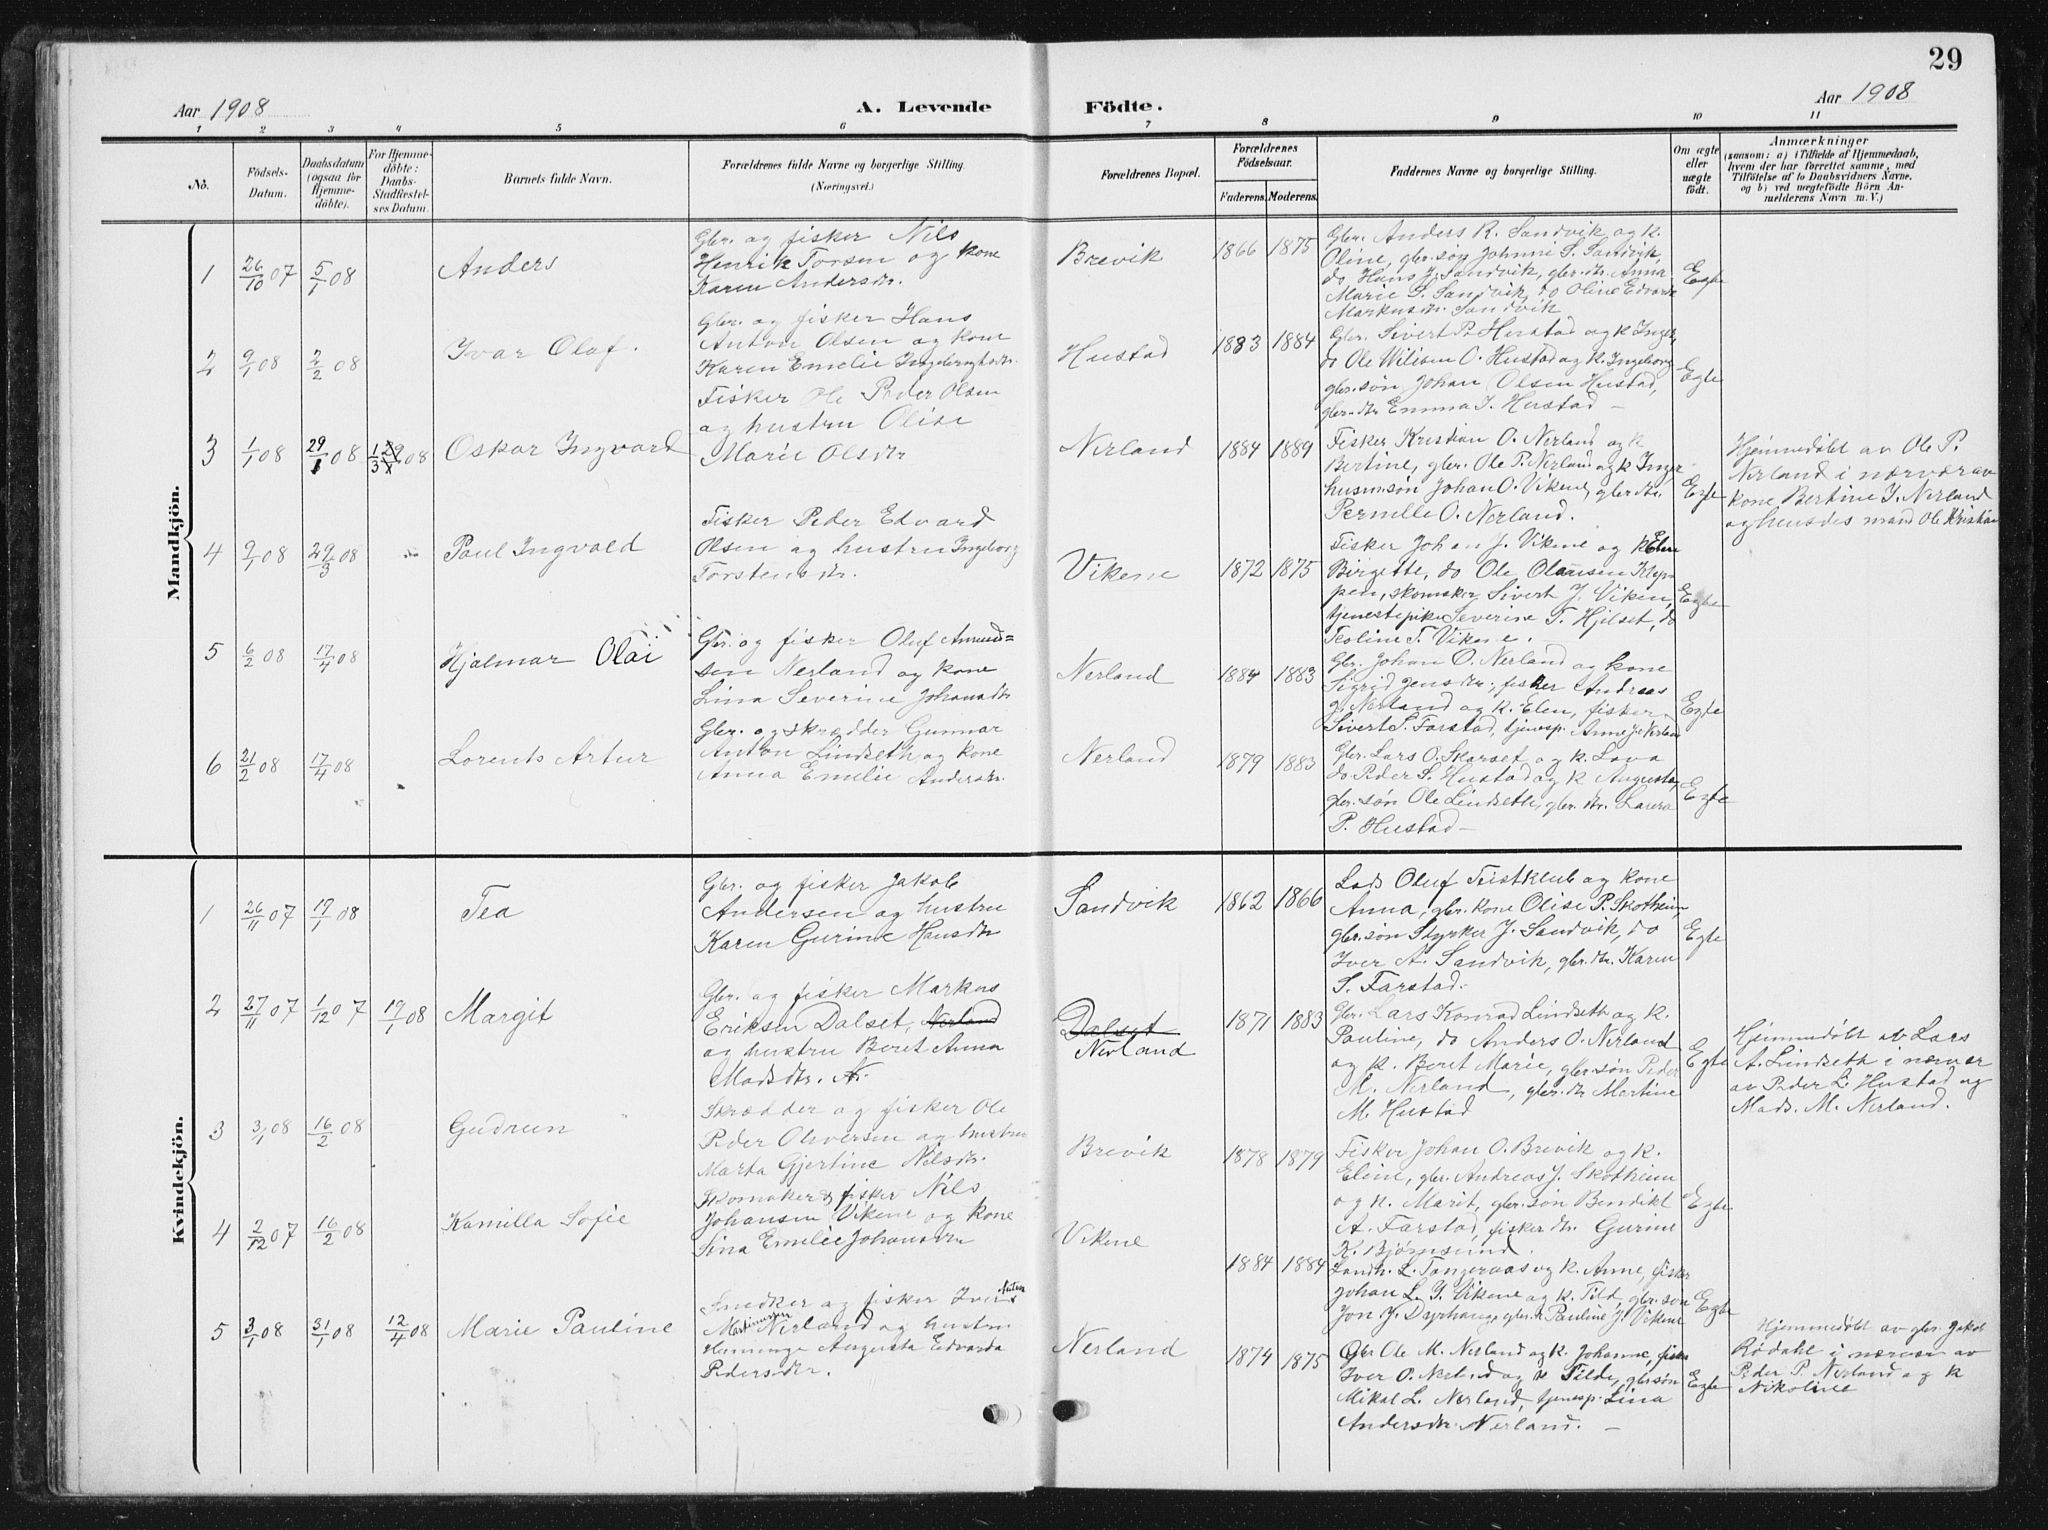 29
Aar 1908
A. Levende Födte.
Aar 1908
1 2 3 4 5 6 7 8 9 10 11
No.
Födsels-Datum.
Daabsdatum (ogsaa for Hjemme-döbte).
For Hjemme-döbte: Daabs-Stadfæstel-ses Datum.
Barnets fulde Navn.
Forældrenes fulde Navne og borgerlige Stilling.
(Næringsvei.)
Forældrenes Bopæl.
Forældrenes Födselsaar.
Faderens. Moderens.
Faddernes Navne og borgerlige Stilling.
Om ægte eller uægte födt.
Anmærkninger
(saasom: a) i Tilfælde af Hjemmedaab,
hvem der har forrettet samme, med
Tilföielse af to Daabsvidners Navne,
og b) ved uægtefödte Börn An-
melderens Navn m. V.)
Mandkjön.
1 26/10 07 5/1 08 Anders
Gbr. og fisker Nils
Henrik Torsen og kone
Karen Andersdtr.
Brevik 1866 1875
Gbr. Anders R. Sandvik og k.
Oline, gbr.søn Johnni S. Sandvik,
do Hans J. Sandvik, gbr.dtr. Anna
Marie S. Sandvik, do Oline Edvarda
Markusdtr. Sandvik
Egte
2 9/1 08 2/2 08 Ivar Olaf.
Gbr. og fisker Hans
Anton Olsen og kone
Karen Emelie Ingebrigtsdtr.
Hustad 1883 1884
Gbr. Sivert P. Hustad og k Inger,
do Ole Wilisen O. Hustad og k. Ingeborg
gbr.søn Johan Olsen Hustad,
gbr.dtr Emma I. Hustad –
Egte
3 1/1 08 29/1 08 1/3 08 Oskar Ingvard
Fisker Ole Peder Olsen
og hustru Olise
Marie Olsdtr
Nerland 1884 1889
Fisker Kristian O. Nerland og k
Bertine, gbr. Ole P. Nerland og k Inger
husm.søn Johan O. Vikene, gbr.dtr.
Pernille O. Nerland.
Egte
Hjemmedøbt av Ole P.
Nerland i nærvær av
kone Bertine J. Nerland
og hendes mand Ole Kristian
4 9/1 08 29/3 08 Paul Ingvald
Fisker Peder Edvard
Olsen og hustru Ingeborg
Torstensdtr.
Vikene 1872 1875
Fisker Johan J. Vikene og k Elen
Birgette, do Ole Olausen Klep-
pen, skomaker Sivert J. Viken,
tjenestepike Severine T. Hjelset, do
Teoline T. Vikene.
Egte
5 6/2 08 17/4 08 Hjalmar Olai
Gbr. og fisker Oluf Amund-
sen Nerland og kone
Lina Severine Johansdtr
Nerland 1884 1883
Gbr. Johan O. Nerland og kone
Sigrid Jensdtr., fisker Andreas
J. Nerland og k. Elen, fisker
Sivert S. Farstad, tjenesp. Anne J. Nerland
Egte
6 21/2 08 17/4 08 Lorents Artur
Gbr. og skrædder Gunnar
Anton Lindseth og kone
Anna Emelie Andersdtr.
Nerland 1879 1883
Gbr. Lars O. Skarset og k. Lava
do Peder S. Hustad og k Augusta,
gbr.søn Ole Lindseth, gbr. dtr. Laura
P. Hustad –
Egte
Kvindekjön.
1 26/11 07 19/1 08 Tea
Gbr. og fisker Jakob
Andersen og hustru
Karen Gurine Hansdtr
Sandvik 1862 1866
Lods Oluf Tustklub og kone
Anna, gbr.kone Olise P. Skotheim
gbr.søn Styrker J. Sandvik, do
Iver A. Sandvik, gbr.dtr. Karen
S. Farstad.
Egte
2 27/11 07 1/12 07 19/1 08 Margit
Gbr. og fisker Markus
Eriksen Dalset, Nerland
og hustru Beret Anna
Madsdtr. N.
Dalset
Nerland 1871 1883
Gbr. Lars Konrad Lindseth og k.
Pauline, do Anders O. Nerland
og k. Beret Marie, gbr.søn Peder
M. Nerland, gbr.dtr Martine
M. Hustad
Egte
Hjemmedøbt av Lars
A. Lindseth i nærvær
av Peder L. Hustad og
Mads. M. Nerland.
3 3/1 08 16/2 08 Gudrun
Skrædder og fisker Ole
Peder Oliversen og hustru
Marta Gjertine Nilsdtr.
Brevik 1878 1879
Fisker Johan O. Brevik og k.
Eline, gbr. Andreas J. Skotheim
og k. Marit, gbr.søn Bendikt
A. Farstad, fisker dtr. Gurine
K. Bjørnsund.
Egte
4 2/12 07 16/2 08 Kamilla Sofie
Skomaker & fisker Nils
Johansen Vikene og kone
Sina Emelie Johansdtr
Vikene 1884 1884
Landh. L. Tangeraas og k. Anne, fisker
Johan L. Y. Vikene og k. Tild, gbr.søn
Jon J. Dyrhaug, gbr.dtr Pauline J. Vikene
Egte
5 3/1 08 31/1 08 12/4 08 Marie Pauline
Snedker og fisker Iver Anton
Martinusen Nerland og hustru
Henninge Augusta Edvarda
Pedersdtr.
Nerland 1874 1875
Gbr Ole M. Nerland og k. Johanne, fisker
Iver O. Nerland og k Tilde, gbr.søn
Mikal L. Nerland, tjenesp. Lina
Andersdtr. Nerland. –
Egte
Hjemmedøbt av gbr. Jakob
Rødahl i nærvær av
Peder P. Nerland og k
Nikoline